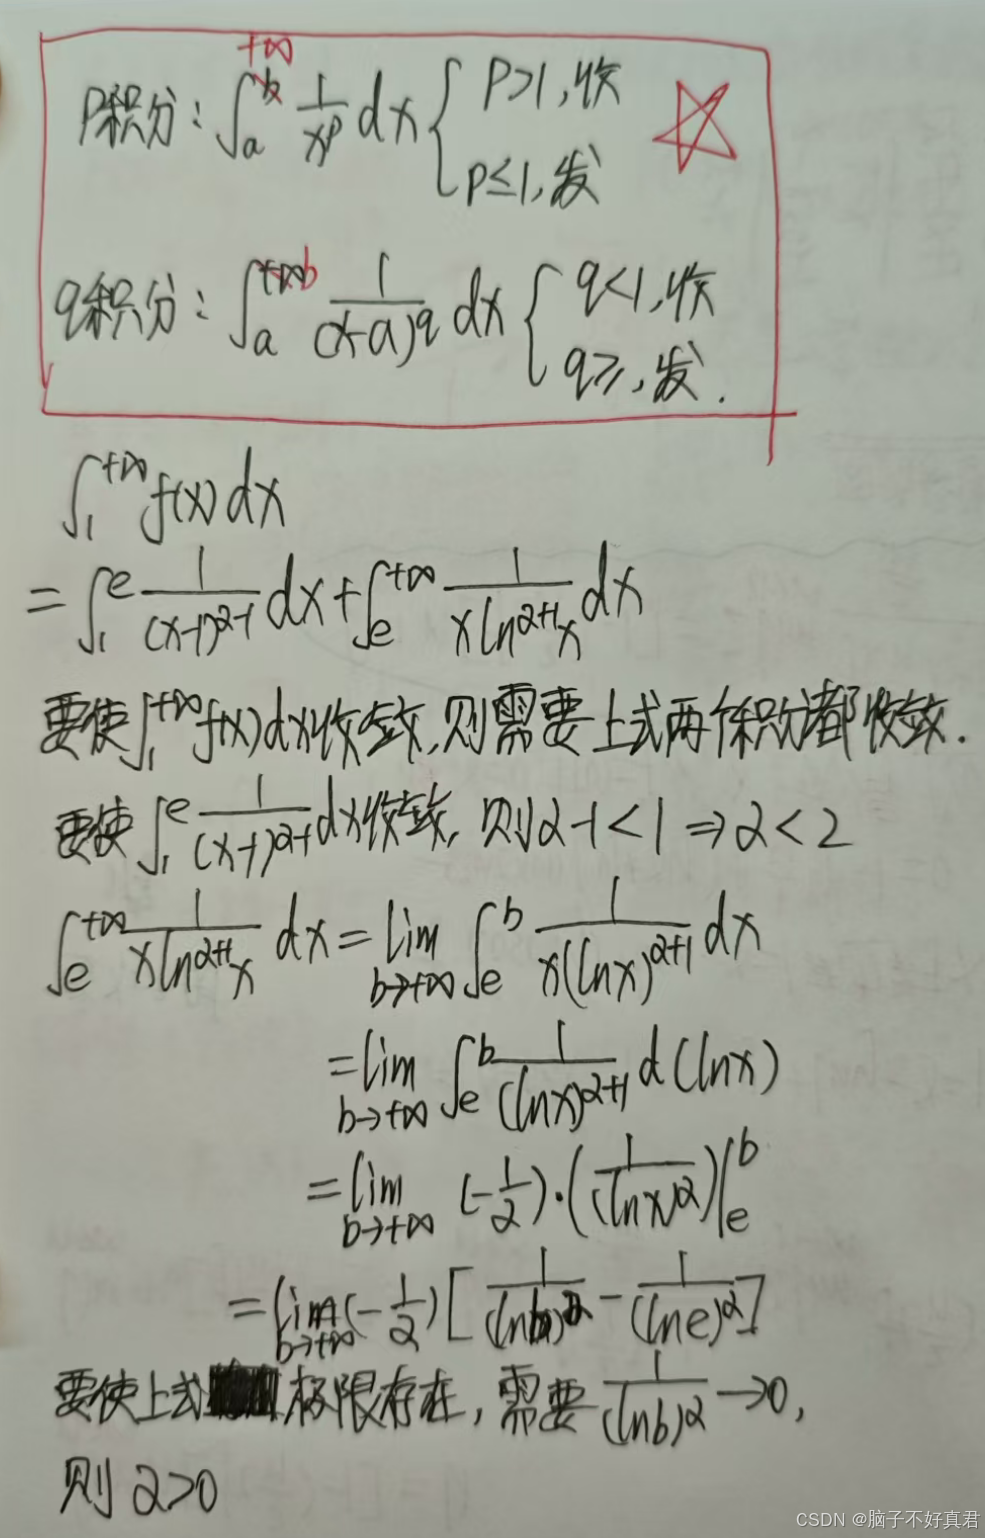 p积分: ∫_a^{+∞} 1/x^p dx { p>1, 收
p≤1, 发
q积分: ∫_a^b 1/(x-a)^q dx { q<1, 收
q≥, 发.
∫_1^{+∞} f(x)dx
= ∫_1^e 1/(x-1)^{α-1} dx + ∫_e^{+∞} 1/(x ln^{α+1} x) dx
要使∫_1^{+∞} f(x)dx收敛, 则需要上式两个积分都收敛.
要使∫_1^e 1/(x-1)^{α-1} dx收敛, 则α-1<1 ⇒ α<2
∫_e^{+∞} 1/(x ln^{α+1} x) dx = lim_{b→+∞} ∫_e^b 1/(x(lnx)^{α+1}) dx
= lim_{b→+∞} ∫_e^b 1/(lnx)^{α+1} d(lnx)
= lim_{b→+∞} (-1/α)·(1/(lnx)^α)|_e^b
= lim_{b→+∞} (-1/α)[1/(lnb)^α - 1/(lne)^α]
要使上式极限存在, 需要 1/(lnb)^α → 0,
则 α>0
CSDN @脑子不好真君